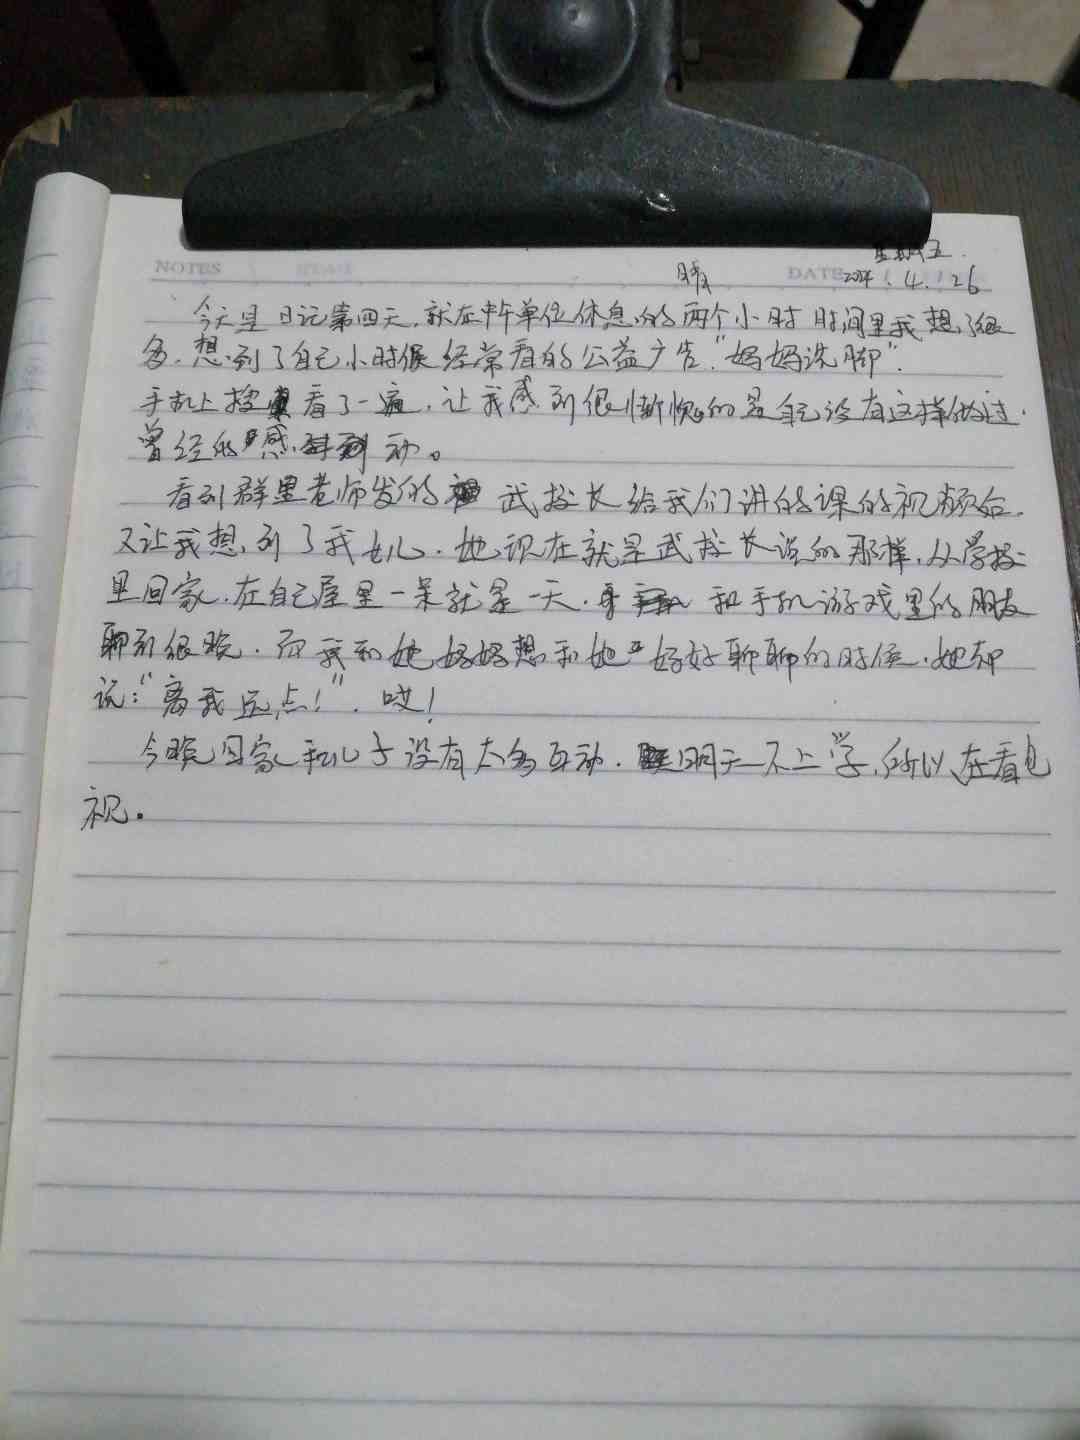 星期五.
NOTES 晴 DATE 2024.4.26
今天是日记第四天.就在中午单位休息的两个小时时间里我想了很
多.想到了自己小时候经常看的公益广告."妈妈洗脚".
手机上搜 看了一遍.让我感到很惭愧的是自己没有这样做过.
曾经的 感 动。
看到群里老师发的 武校长给我们讲的课的视频后.
又让我想到了我女儿.她现在就是武校长说的那样.从学校
里回家.在自己屋里一呆就是一天. 和手机游戏里的朋友
聊到很晚.而我和她好好想和她 好好聊聊的时候.她却
说:"离我远点!".哎!
今晚回家和儿子没有太多互动. 明天不上学.所以在看电
视.